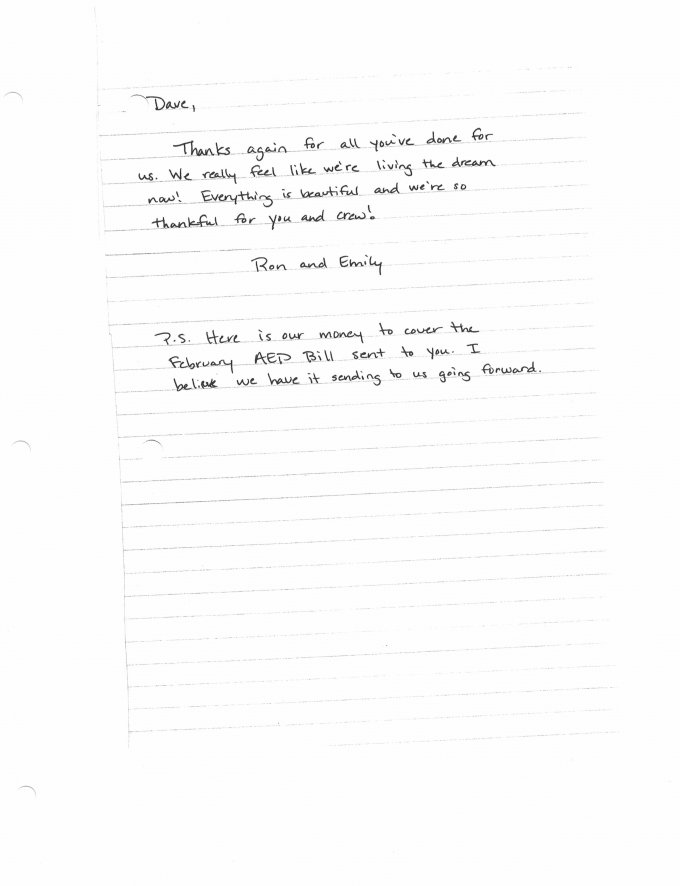 Dave,
Thanks again for all you've done for
us. We really feel like we're living the dream
now! Everything is beautiful and we're so
thankful for you and crew!
Ron and Emily
P.S. Here is our money to cover the
February AEP Bill sent to you. I
believe we have it sending to us going forward.